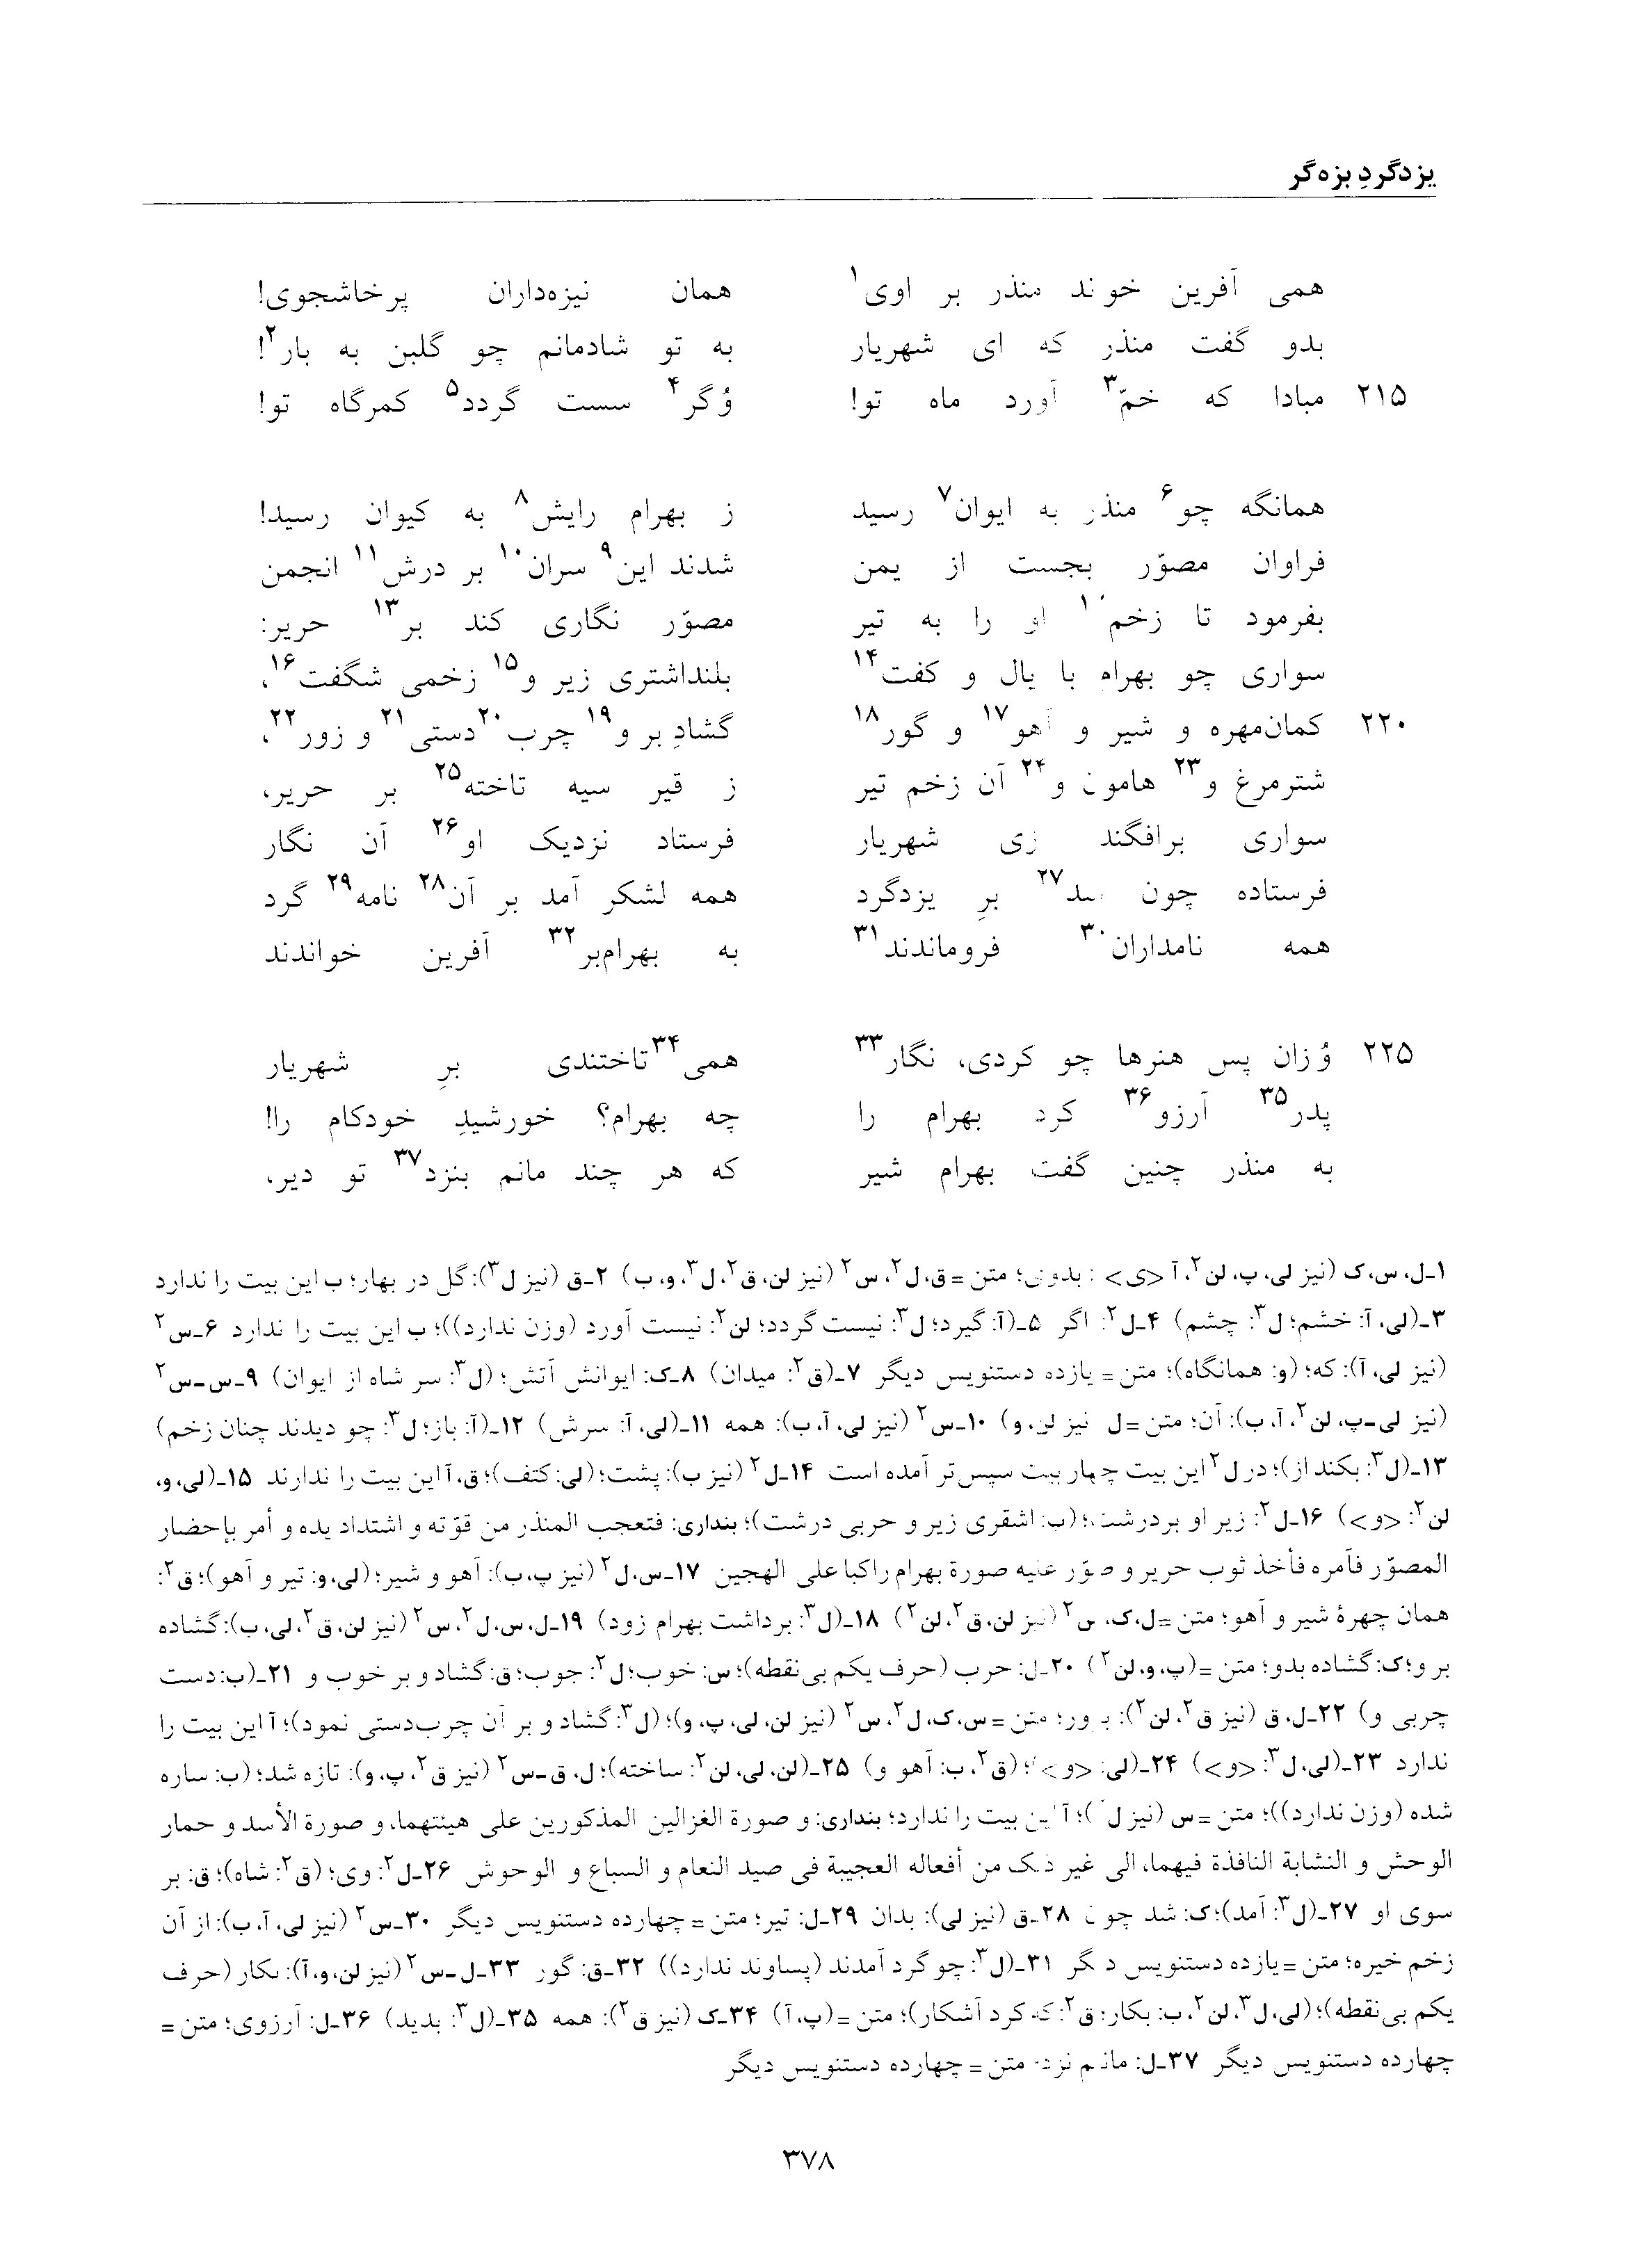 یزدگردِ بزه‌گر
همی آفرین خواند منذر بر اوی۱ همان نیزه‌داران پرخاشجوی!
بدو گفت منذر که ای شهریار به تو شادمانم چو گلبن به بار۲!
۲۱۵ مبادا که خمّ۳ آورد ماه تو! وُگر۴ سست گردد۵ کمرگاه تو!
همانگه چو۶ منذر به ایوان۷ رسید ز بهرام رایش۸ به کیوان رسید!
فراوان مصوّر بجست از یمن شدند این۹ سران۱۰ بر درش۱۱ انجمن
بفرمود تا زخم او را به تیر مصوّر نگاری کند بر۱۳ حریر:
سواری چو بهرام با یال و کفت۱۴ بلنداشتری زیر و۱۵ زخمی شگفت۱۶،
۲۲۰ کمان‌مهره و شیر و آهو۱۷ و گور۱۸ گشادِ بر و۱۹ چرب۲۰دستی۲۱ و زور۲۲،
شترمرغ و۲۳ هامون و۲۴ آن زخم تیر ز قیر سیه تاخته۲۵ بر حریر،
سواری برافگند زی شهریار فرستاد نزدیک او۲۶ آن نگار
فرستاده چون شد۲۷ برِ یزدگرد همه لشکر آمد بر آن۲۸ نامه۲۹ گرد
همه نامداران۳۰ فروماندند۳۱ به بهرام‌بر۳۲ آفرین خواندند
۲۲۵ وُزان پس هنرها چو کردی، نگار۳۳ همی۳۴ تاختندی برِ شهریار
پدر۳۵ آرزو۳۶ کرد بهرام را چه بهرام؟ خورشیدِ خودکام را!
به منذر چنین گفت بهرام شیر که هر چند مانم بنزد۳۷ تو دیر،
۱ـ ل، س، ک (نیز لی، پ، لن۲، آ <ی>: بدوی؛ متن = ق، ل۲، س۲ (نیز لن، ق۲، ل۳، و، ب) ۲ـ ق (نیز ل۳): گل در بهار؛ ب این بیت را ندارد
۳ـ (لی، آ: خشم؛ ل۳: چشم) ۴ـ ل۲: اگر ۵ـ (آ: گیرد؛ ل۳: نیست گردد؛ لن۲: نیست آورد (وزن ندارد))؛ ب این بیت را ندارد ۶ـ س۲
(نیز لی، آ): که؛ (و: همانگاه)؛ متن = یازده دستنویس دیگر ۷ـ (ق۲: میدان) ۸ـ ک: ایوانش آتش؛ (ل۳: سر شاه از ایوان) ۹ـ س ـ س۲
(نیز لی ـ پ، لن۲، آ، ب): آن؛ متن = ل نیز لن، و) ۱۰ـ س۲ (نیز لی، آ، ب): همه ۱۱ـ (لی، آ: سرش) ۱۲ـ (آ: باز؛ ل۳: چو دیدند چنان زخم)
۱۳ـ (ل۳: بکند از)؛ در ل۲ این بیت چهار بیت سپس‌تر آمده است ۱۴ـ ل۲ (نیز ب): پشت؛ (لی: کتف)؛ ق، آ این بیت را ندارند ۱۵ـ (لی، و،
لن۲: <و>) ۱۶ـ ل۲: زیر او بر درشت؛ (ب: اشقری زیر و حربی درشت)؛ بنداری: فتعجب المنذر من قوّته و اشتداد یده و أمر بإحضار
المصوّر فأمره فأخذ ثوب حریر و صوّر علیه صورة بهرام راکبا علی الهجین ۱۷ـ س، ل۲ (نیز پ، ب): آهو و شیر؛ (لی، و: تیر و آهو)؛ ق۲:
همان چهرهٔ شیر و آهو؛ متن = ل، ک، س۲ (نیز لن، ق۲، لن۲) ۱۸ـ (ل۳: برداشت بهرام زود) ۱۹ـ ل، س، ل۲، س۲ (نیز لن، ق۲، لی، ب): گشاده
بر و؛ ک: گشاده بدو؛ متن = (پ، و، لن۲) ۲۰ـ ل: حرب (حرف یکم بی‌نقطه)؛ س: خوب؛ ل۲: جوب؛ ق: گشاد و بر خوب و ۲۱ـ (ب: دست
چربی و) ۲۲ـ ل، ق (نیز ق۲، لن۲): ور؛ متن = س، ک، ل۲، س۲ (نیز لن، لی، پ، و)؛ (ل۳: گشاد و بر آن چرب‌دستی نمود)؛ آ این بیت را
ندارد ۲۳ـ (لی، ل۳: <و>) ۲۴ـ (لی: <و>)؛ (ق۲، ب: آهو و) ۲۵ـ (لن، لی، لن۲: ساخته)؛ ل، ق ـ س۲ (نیز ق۲، پ، و): تازه شد؛ (ب: ساره
شده (وزن ندارد))؛ متن = س (نیز ل)؛ آ این بیت را ندارد؛ بنداری: و صورة الغزالین المذکورین علی هیئتهما، و صورة الأسد و حمار
الوحش و النشابة النافذة فیهما، الی غیر ذلک من أفعاله العجیبة فی صید النعام و السباع و الوحوش ۲۶ـ ل۲: وی؛ (ق۲: شاه)؛ ق: بر
سوی او ۲۷ـ (ل۳: آمد)؛ ک: شد چون ۲۸ـ ق (نیز لی): بدان ۲۹ـ ل: تیر؛ متن = چهارده دستنویس دیگر ۳۰ـ س۲ (نیز لی، آ، ب): از آن
زخم خیره؛ متن = یازده دستنویس دیگر ۳۱ـ (ل۳: چو گرد آمدند (پساوند ندارد)) ۳۲ـ ق: گور ۳۳ـ ل ـ س۲ (نیز لن، و، آ): بکار (حرف
یکم بی‌نقطه)؛ (لی، ل۳، لن۲، ب: بکار؛ ق۲: که کرد آشکار)؛ متن = (پ، آ) ۳۴ـ ک (نیز ق۲): همه ۳۵ـ (ل۳: بدید) ۳۶ـ ل: آرزوی؛ متن =
چهارده دستنویس دیگر ۳۷ـ ل: مانم نزد؛ متن = چهارده دستنویس دیگر
۳۷۸